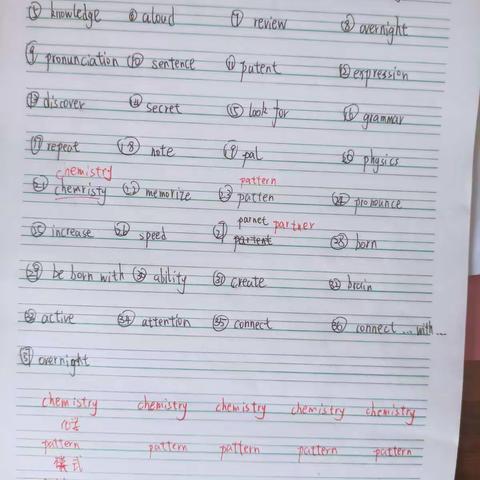 ⑤ knowledge ⑥ aloud ⑦ review ⑧ overnight
⑨ pronunciation ⑩ sentence ⑪ putent ⑫ expression
⑬ discover ⑭ secret ⑮ look for ⑯ grammar
⑰ repeat ⑱ note ⑲ pal ⑳ physics
chemistry pattern
㉑ chemristy ㉒ memorize ㉓ patten ㉔ pronounce
parnet partner
㉕ increase ㉖ speed ㉗ partent ㉘ born
㉙ be born with ㉚ ability ㉛ create ㉜ brain
㉝ active ㉞ attention ㉟ connect ㊱ connect ... with ...
overnight
chemistry chemistry chemistry chemistry chemistry
化学
pattern pattern pattern pattern pattern
模式